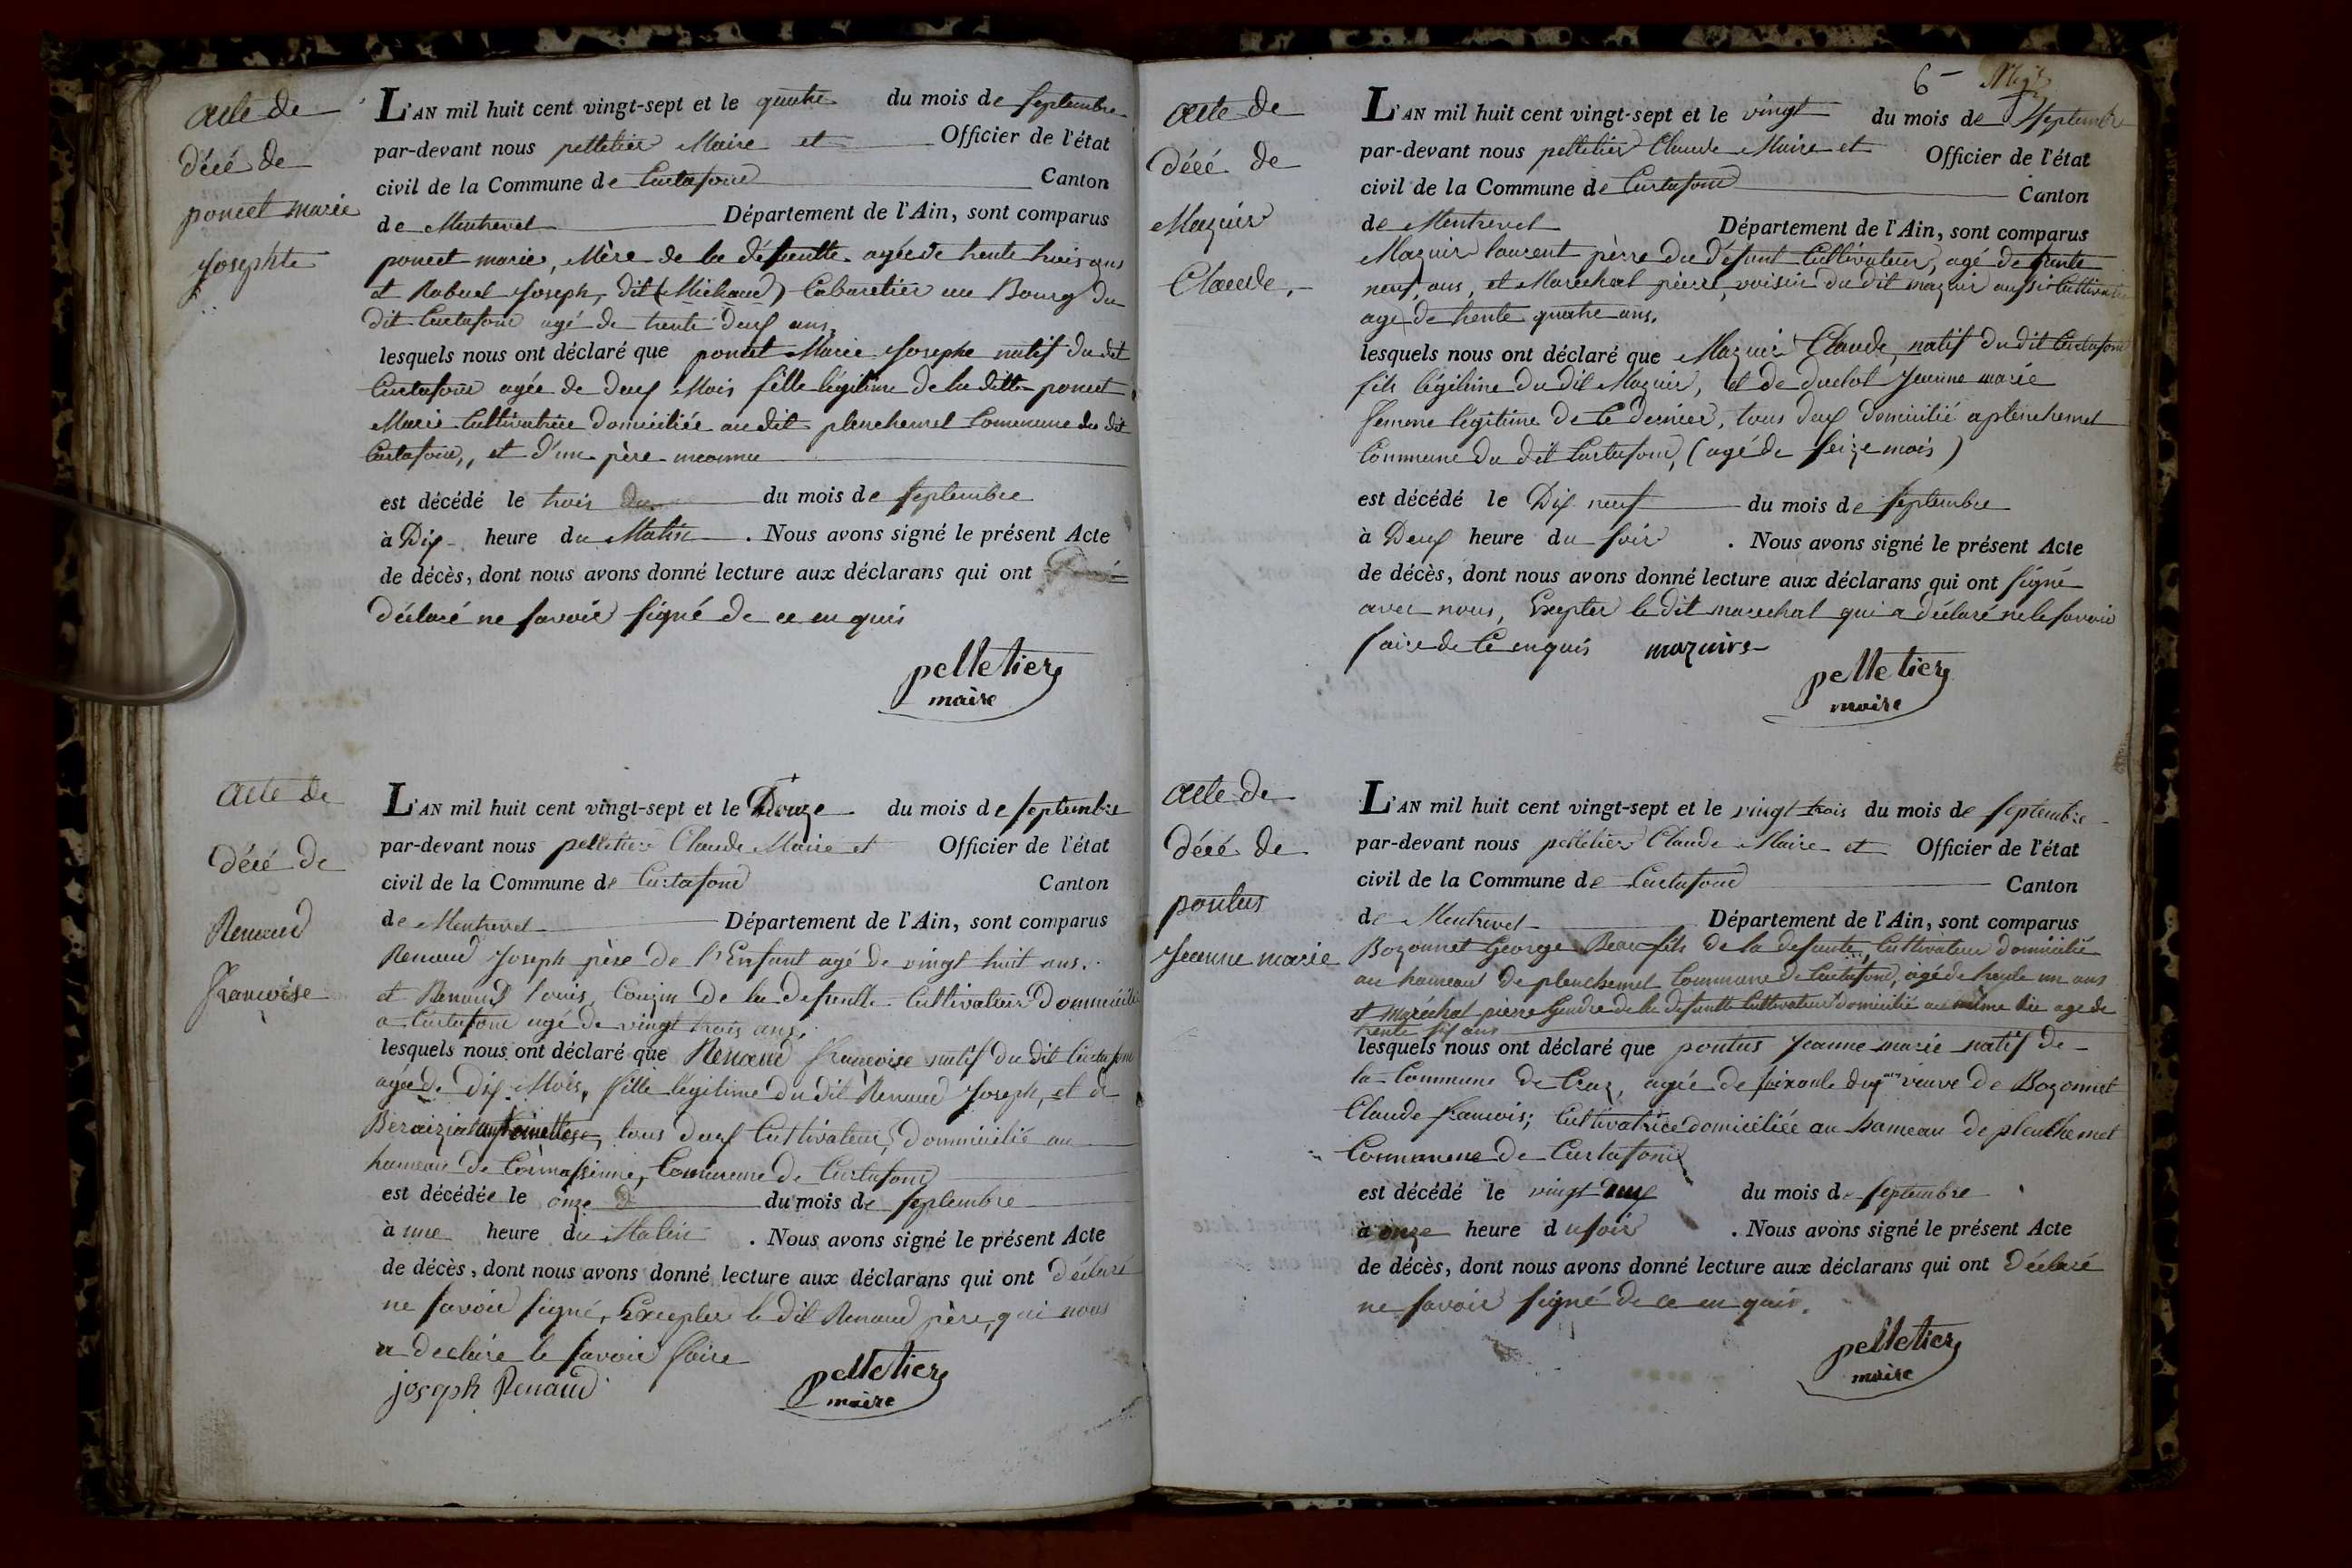 acte de
décé de
poncet marie
Josephte
L'AN mil huit cent vingt-sept et le quatre du mois de septembre
par-devant nous pelletier Maire et Officier de l'état
civil de la Commune de Curtafond Canton
de Montrevel Département de l'Ain, sont comparus
poncet marie, Mère de la défuntte agée de trente trois ans
et Rabuel Joseph, dit (Michaud) Cabaretier au Bourg du
dit Curtafond agé de trente deux ans,
lesquels nous ont déclaré que poncet Marie Josephe natif du dit
Curtafond agée de deux Mois fille légitime de la ditte poncet
Marie Cultivatrice domiciliée au dit planchemel Commune du dit
Curtafond,, et d'un père inconnu
est décédé le trois du mois de septembre
à Dix heure du Matin . Nous avons signé le présent Acte
de décès, dont nous avons donné lecture aux déclarans qui ont
déclaré ne savoir signé de ce en quis
pelletier
maire
acte de
décé de
Renaud
francoise
L'AN mil huit cent vingt-sept et le Douze du mois de septembre
par-devant nous pelletier Claude Maire et Officier de l'état
civil de la Commune de Curtafond Canton
de Montrevel Département de l'Ain, sont comparus
Renaud Joseph père de l'Enfant agé de vingt huit ans.
et Renaud louis, Couzin de la defuntte Cultivateur Dommicilié
a Curtafond agé de vingt trois ans,
lesquels nous ont déclaré que Renaud francoise natif du dit Curtafond
agée de dix Mois, fille légitime du dit Renaud Joseph, et de
antoinette, tous deux Cultivateur, dommicilié au
hameau de Cormassinne, Commune de Curtafond
est décédée le onze du mois de septembre
à une heure du Matin . Nous avons signé le présent Acte
de décès, dont nous avons donné lecture aux déclarans qui ont déclaré
ne savoir signé, Excepter le dit Renaud père, qui nous
a declaré le savoir faire
joseph Renaud
pelletier
maire
6
acte de
décé de
Mazuir
Claude,
L'AN mil huit cent vingt-sept et le vingt du mois de septembre
par-devant nous pelletier Claude Maire et Officier de l'état
civil de la Commune de Curtafond Canton
de Montrevel Département de l'Ain, sont comparus
Mazuir laurent père du défunt Cultivateur, agé de trente
neuf ans, et Marechal pierre, voisin du dit mazuir aussi Cultivateur
agé de trente quatre ans,
lesquels nous ont déclaré que Mazuir Claude, natif du dit Curtafond
fils légitime du dit Mazuir, et de duclot Jeanne marie
femme légitime de Ce dernier, tous deux domicilié a planchemel
Commune du dit Curtafond, (agé de seize mois)
est décédé le Dix neuf du mois de septembre
à Deux heure du soir . Nous avons signé le présent Acte
de décès, dont nous avons donné lecture aux déclarans qui ont signé
avec nous, Excepter le dit marechal qui a déclaré ne le savoir
faire de Ce enquis mazuire
pelletier
maire
acte de
décé de
pontus
Jeanne marie
L'AN mil huit cent vingt-sept et le vingt trois du mois de septembre
par-devant nous pelletier Claude Maire et Officier de l'état
civil de la Commune de Curtafond Canton
de Montrevel Département de l'Ain, sont comparus
Bozonnet George Beau fils de la defunte, Cultivateur domicilié
au hameau de planchemel Commune de Curtafond, agé de trente un ans
et maréchal pierre Gendre de la defuntte Cultivateur domicilié au même lieu agé de
trente six ans
lesquels nous ont déclaré que pontus Jeanne marie natif de
la Commune de Cras, agée de soixante dix ans veuve de Bozonnet
Claude francois; Cultivatrice domiciliée au hameau de planchemel
Commune de Curtafond
est décédé le vingt deux du mois de septembre
à onze heure du soir . Nous avons signé le présent Acte
de décès, dont nous avons donné lecture aux déclarans qui ont déclaré
ne savoir signé de ce en quis.
pelletier
maire